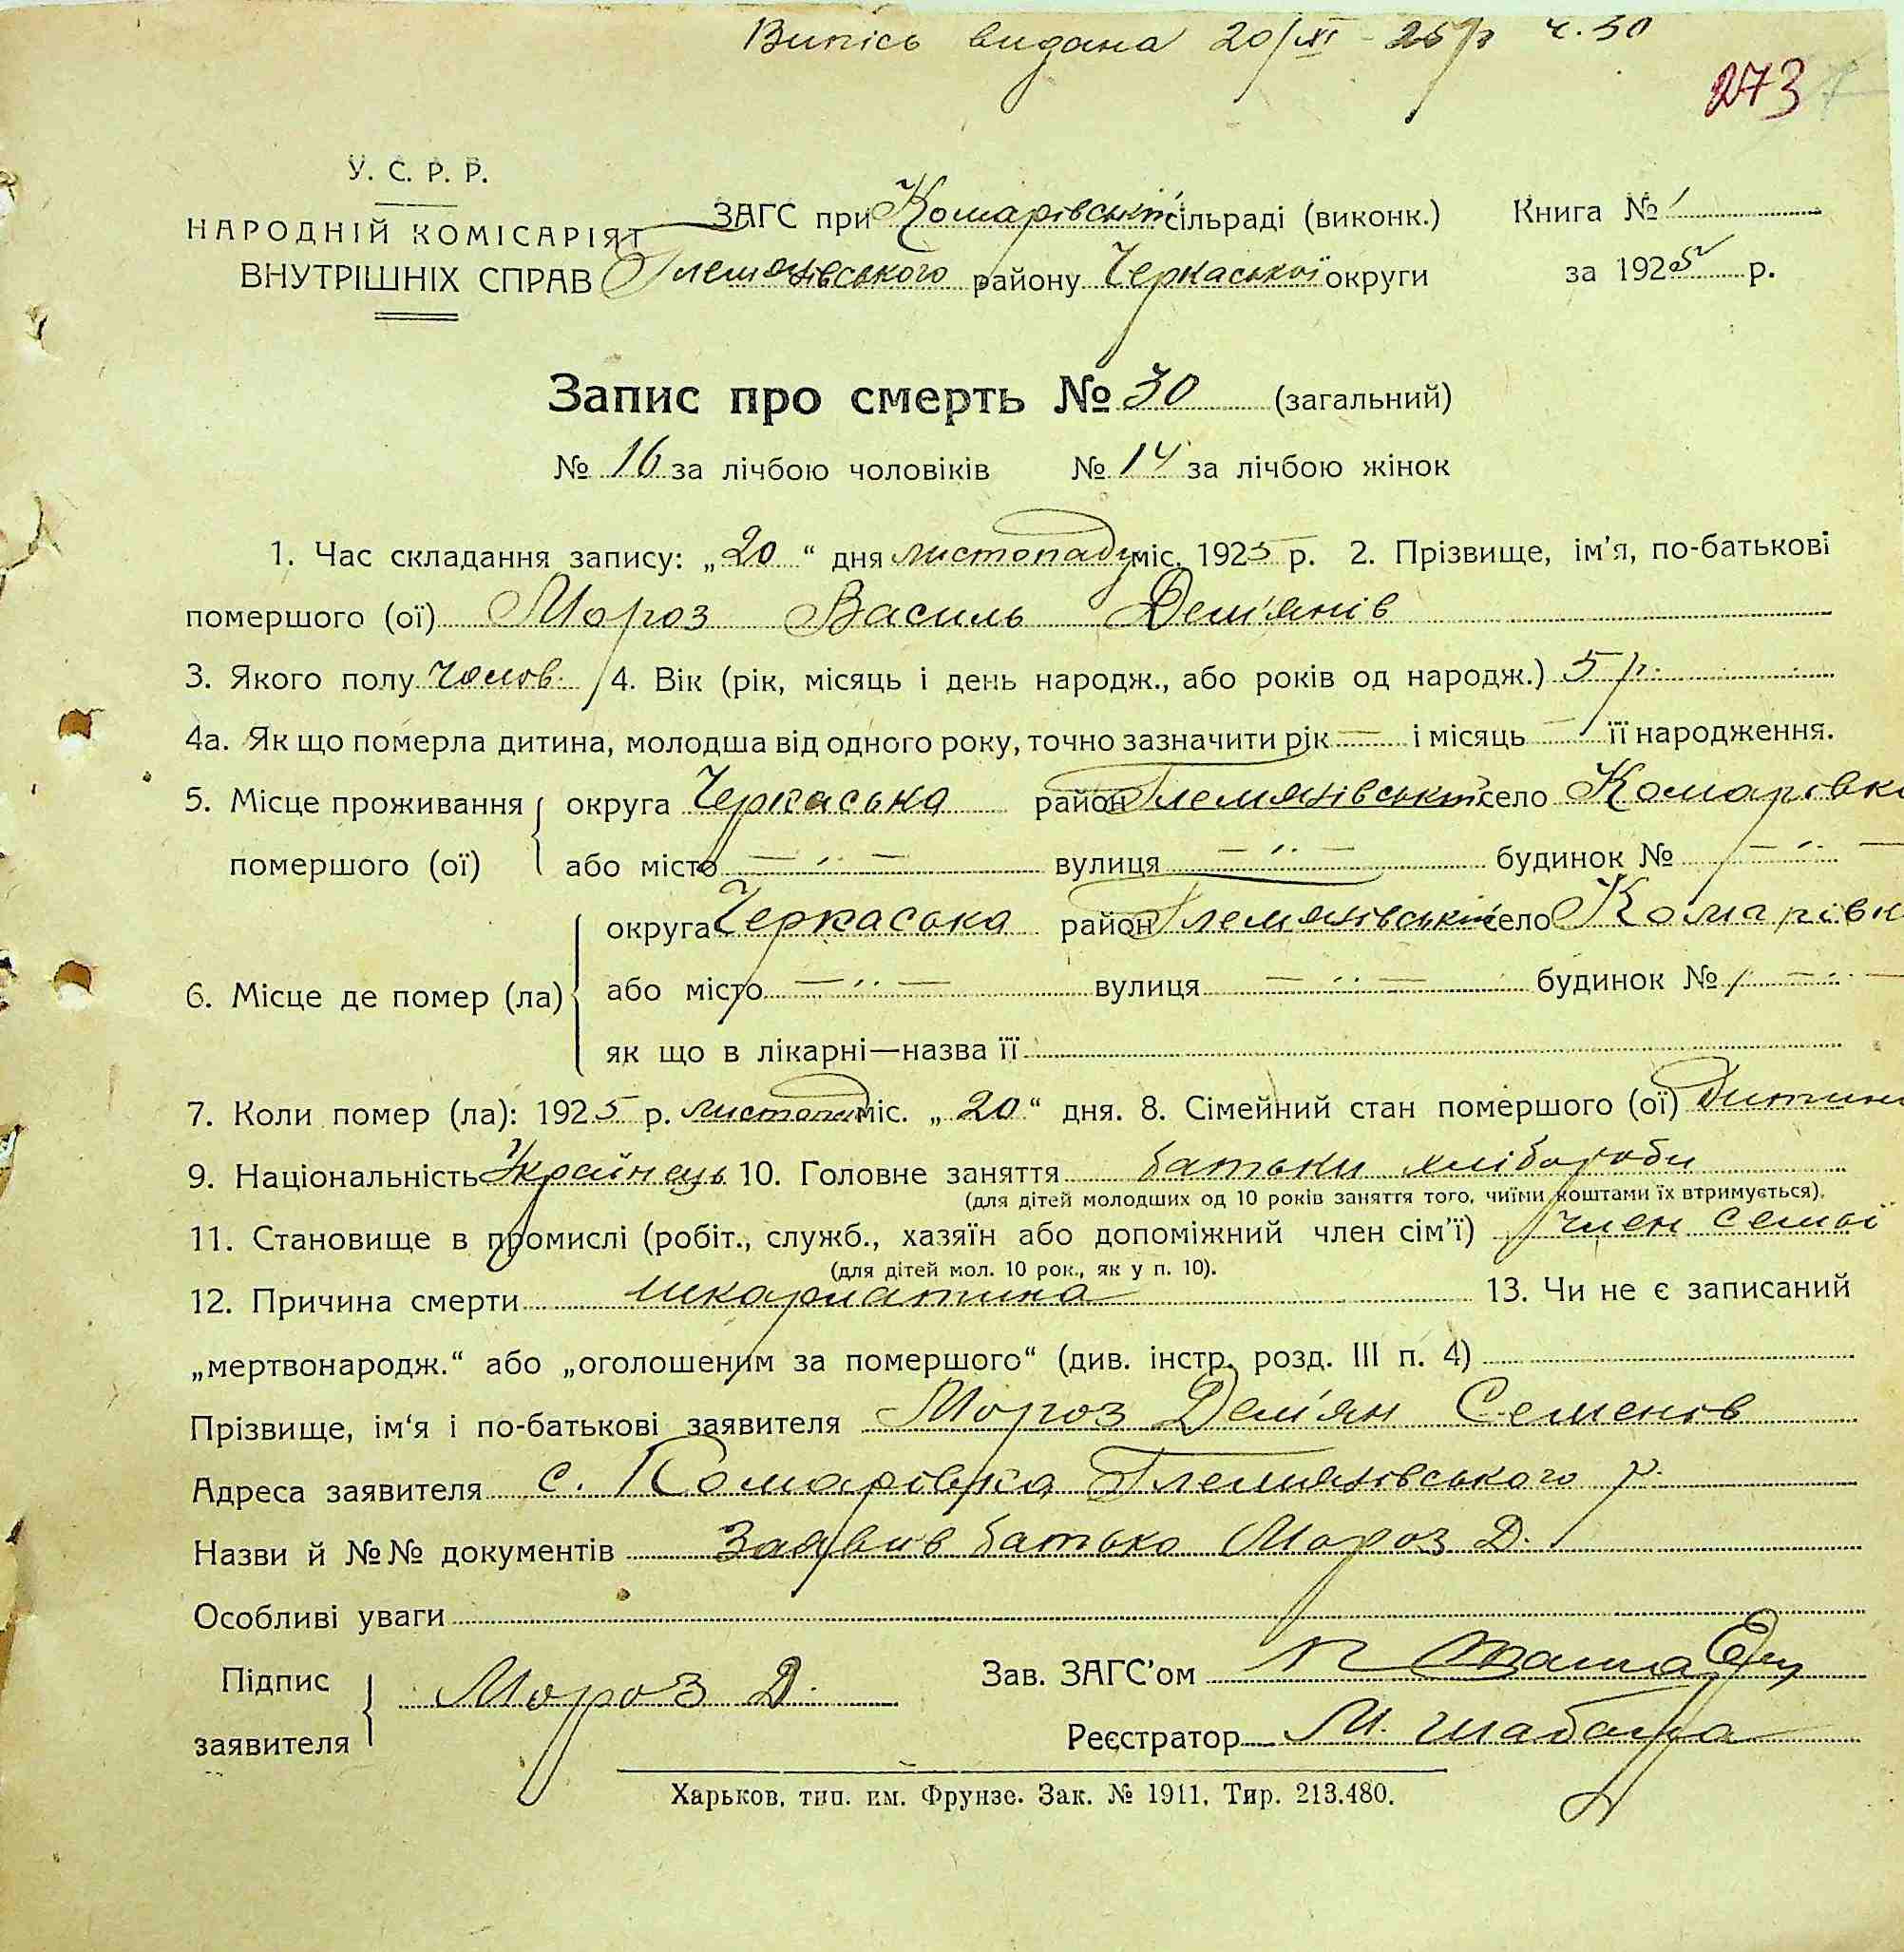 Випісь видана 20/XI - 25 р ч. 30
273
У. С. Р. Р.
НАРОДНІЙ КОМІСАРІЯТ
ВНУТРІШНІХ СПРАВ
ЗАГС при Комарівській сільраді (виконк.)
Гельмязівського району Черкаської округи
Книга № 1
за 1925 р.
Запис про смерть № 30 (загальний)
№ 16 за лічбою чоловіків № 14 за лічбою жінок
1. Час складання запису: „20“ дня листопаду міс. 1925 р. 2. Прізвище, ім'я, по-батькові
помершого (ої) Мороз Василь Дем'янів
3. Якого полу чолов. 4. Вік (рік, місяць і день народж., або років од народж.) 5 р.
4а. Як що померла дитина, молодша від одного року, точно зазначити рік — і місяць — її народження.
5. Місце проживання округа Черкаська район село Комарівка
помершого (ої) або місто — „ — вулиця — „ — будинок № — „ —
округа Черкаська район село Комарівк
6. Місце де помер (ла) або місто — „ — вулиця — „ — будинок № — „ —
як що в лікарні—назва її
7. Коли помер (ла): 1925 р. листопад міс. „20“ дня. 8. Сімейний стан помершого (ої) дитина
9. Національність Українець 10. Головне заняття батьки хлібороби
(для дітей молодших од 10 років заняття того, чиїми коштами їх втримується).
11. Становище в промислі (робіт., служб., хазяїн або допоміжний член сім'ї) член семьї
(для дітей мол. 10 рок., як у п. 10).
12. Причина смерти шкарлатина 13. Чи не є записаний
„мертвонародж.“ або „оголошеним за помершого“ (див. інстр. розд. III п. 4)
Прізвище, ім'я і по-батькові заявителя Мороз Дем'ян Семенів
Адреса заявителя с. Комарівка р.
Назви й №№ документів Заявив батько Мороз Д.
Особливі уваги
Підпис заявителя Мороз Д.
Зав. ЗАГС'ом
Реєстратор М. Шабатра
Харьков, тип. им. Фрунзе. Зак. № 1911. Тир. 213.480.